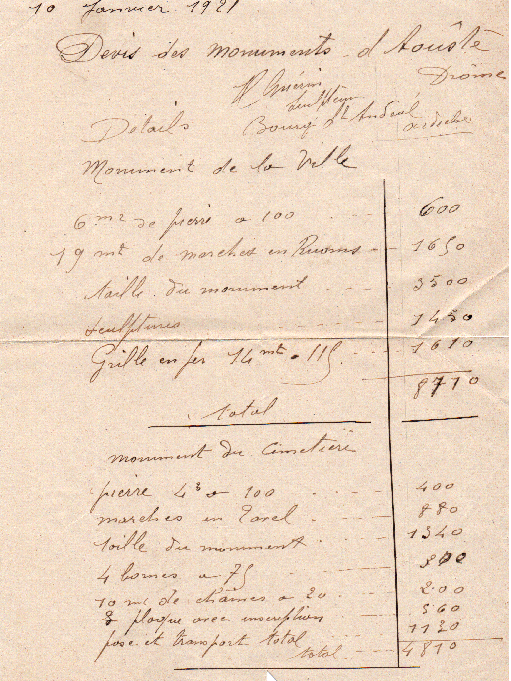 10 Janvier 1921
Devis des monuments d'Aoûste
Drôme
P Guérin
sculpteur
Bourg St Andéol
Ardèche
Détails
Monument de la Ville
6 m2 de pierre a 100 600
19 mt de marches en Ruoms 1650
taille du monument 3500
sculptures 1450
Grille en fer 14 mt a 115 1610
8710
total
monument du Cimetière
pierre 4 3 a 100 400
marches en Tavel 880
taille du monument 1340
4 bornes a 75 300
10 mt de chaînes a 20 200
3 plaque avec inscription 560
pose et transport total 1130
total 4810